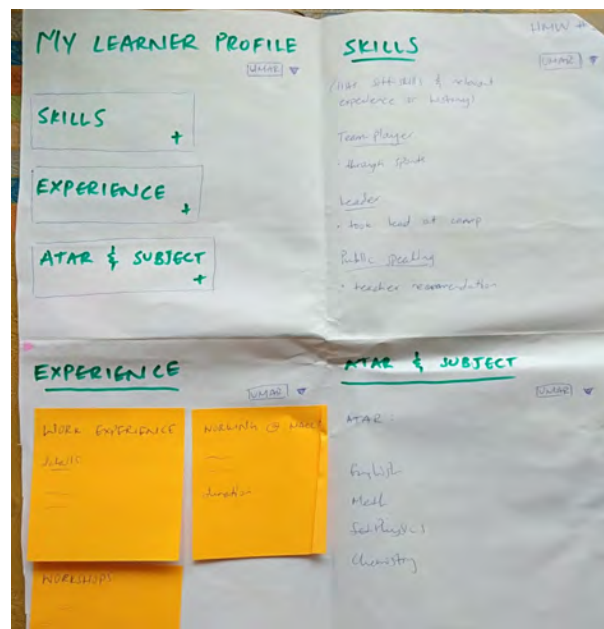 MY LEARNER PROFILE
UMAR
SKILLS
+
EXPERIENCE
+
ATAR & SUBJECT
+
HMW #
SKILLS
UMAR
experience or history)
Team Player
through sports
Leader
took lead at camp
Public speaking
teacher recommendation
EXPERIENCE
UMAR
WORK EXPERIENCE
details
WORKING @
duration
WORKSHOPS
ATAR & SUBJECT
UMAR
ATAR:
English
Math
Physics
Chemistry